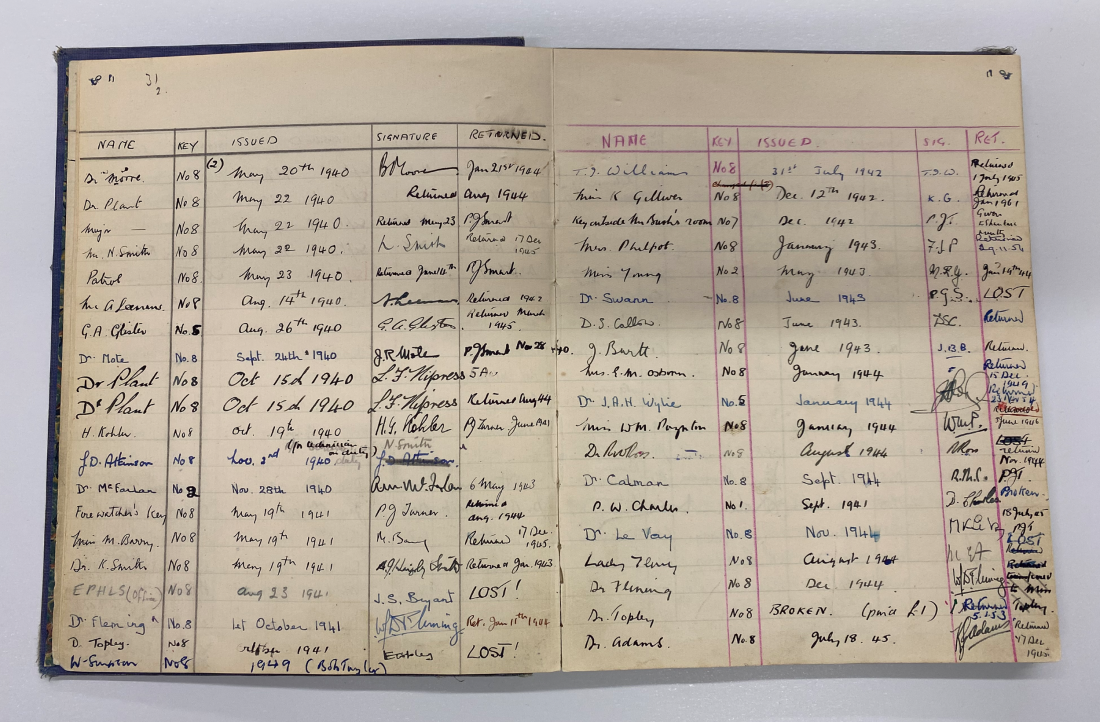 31
2.
NAME KEY ISSUED SIGNATURE RETURNED.
Dr Moore. No 8 (2) May 20th 1940 B Moore Jan 21st 1944
Dr. Plant No 8 May 22 1940 Returned Aug 1944
No 8 May 22 1940. Returned May 23 P.J Smart
Mr. N. Smith No 8 May 22 1940. N Smith Returned 17 Dec 1945
Patrol No 8 May 23 1940 Returned June 14th P.J Smart.
No 8 Aug. 14th 1940. Returned 1942
G.A. Glister No. 5 Aug. 26th 1940 G.A. Glister Returned March 1945.
Dr. Mote No. 8 Sept. 24th 1940 J.R. Mote P.J Smart Nov 28 40.
Dr Plant No 8 Oct 15d 1940 L.F. Hipress
Dr Plant No 8 Oct 15d 1940 L.F. Hipress Returned Aug 44
H. Kohler No 8 Oct. 19th 1940 H.G. Kohler PJ Turner June 1941
J.D. Atkinson No 8 Nov. 2nd 1940 (for technician on duty) N Smith J.D. Atkinson.
Dr. McFarlan No 2 Nov. 28th 1940 6 May 1943
Firewatcher's Key No 8 May 19th 1941 P.J Turner. Returned Aug. 1944
Miss M. Barry. No 8 May 19th 1941 M. Barry Return 17 Dec. 1945.
Dr. K. Smith No 8 May 19th 1941 Returned Jan. 1943
EPHLS (Office) No 8 Aug 23 1941 J.S. Bryant LOST!
Dr Fleming No. 8 1st October 1941 W D Fleming Ret. Jan 11th 1944
D. Topley. No 8 1941 E Topley LOST!
W. Simpson No 8 1949
NAME KEY ISSUED. SIG. RET.
T.J. Williams No 8 31st July 1942 T.J.W. Returned 1 July 1945
Miss K Gilliver No 8 Dec. 12th 1942. K.G. Returned Jan 1961
Key outside Mr Bush's room No 7 Dec. 1942 P.J.T. Given
Mrs. Philpot. No 8 January 1943. F.J.P 29.11.54
Miss Young No 2 May 1943. Jan 14th 44
Dr. Swann No. 8 June 1943 P.G.S. LOST
D.S. Callow. No 8 June 1943. DSC. Returned
J. Burtt No 8 June 1943. J.B.B. Return.
Mrs. E.M. Osborn. No 8 January 1944 Returned 15 Dec. 1949
Dr J.A.H. Wylie No. 5 January 1944 Returned 23 Nov 54
Miss WM. Poynton No 8 January 1944 W.M.P. 3 June 1946
Dr. RW Ross No 8 August 1944 R Ross return Nov. 1944
Dr. Calman No. 8 Sept. 1944 PJT
P. W. Charles No 1. Sept. 1941 D. Charles Broken.
Dr. Le Vay No. 8 Nov. 1944 LOST
Lady Fleming No 8 August 1944
Dr Fleming No 8 Dec 1944 W D Fleming
Dr. Topley No 8 BROKEN. (paid £1) Returned 5.1.53
Dr. Adams No. 8 July 18. 45. Adams Returned 17 Dec 1945